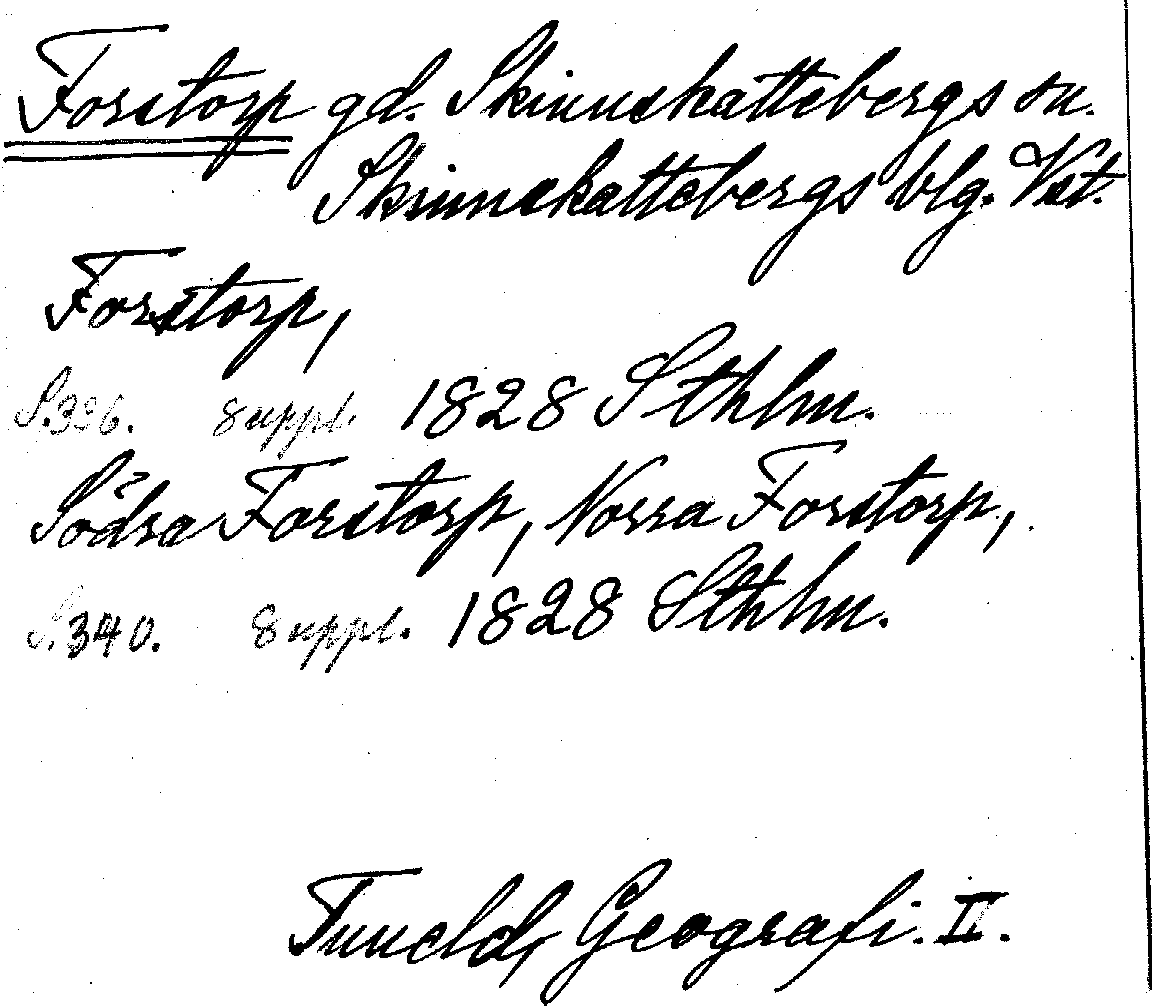 Forstorp gd. Skinnskattebergs sn.
Skinnskattebergs blg. Vst.
Forstorp,
S.336. 8 uppl. 1828 Sthlm.
Södra Forstorp, Norra Forstorp,
S.340. 8 uppl. 1828 Sthlm.
Tuneld, Geografi. II.